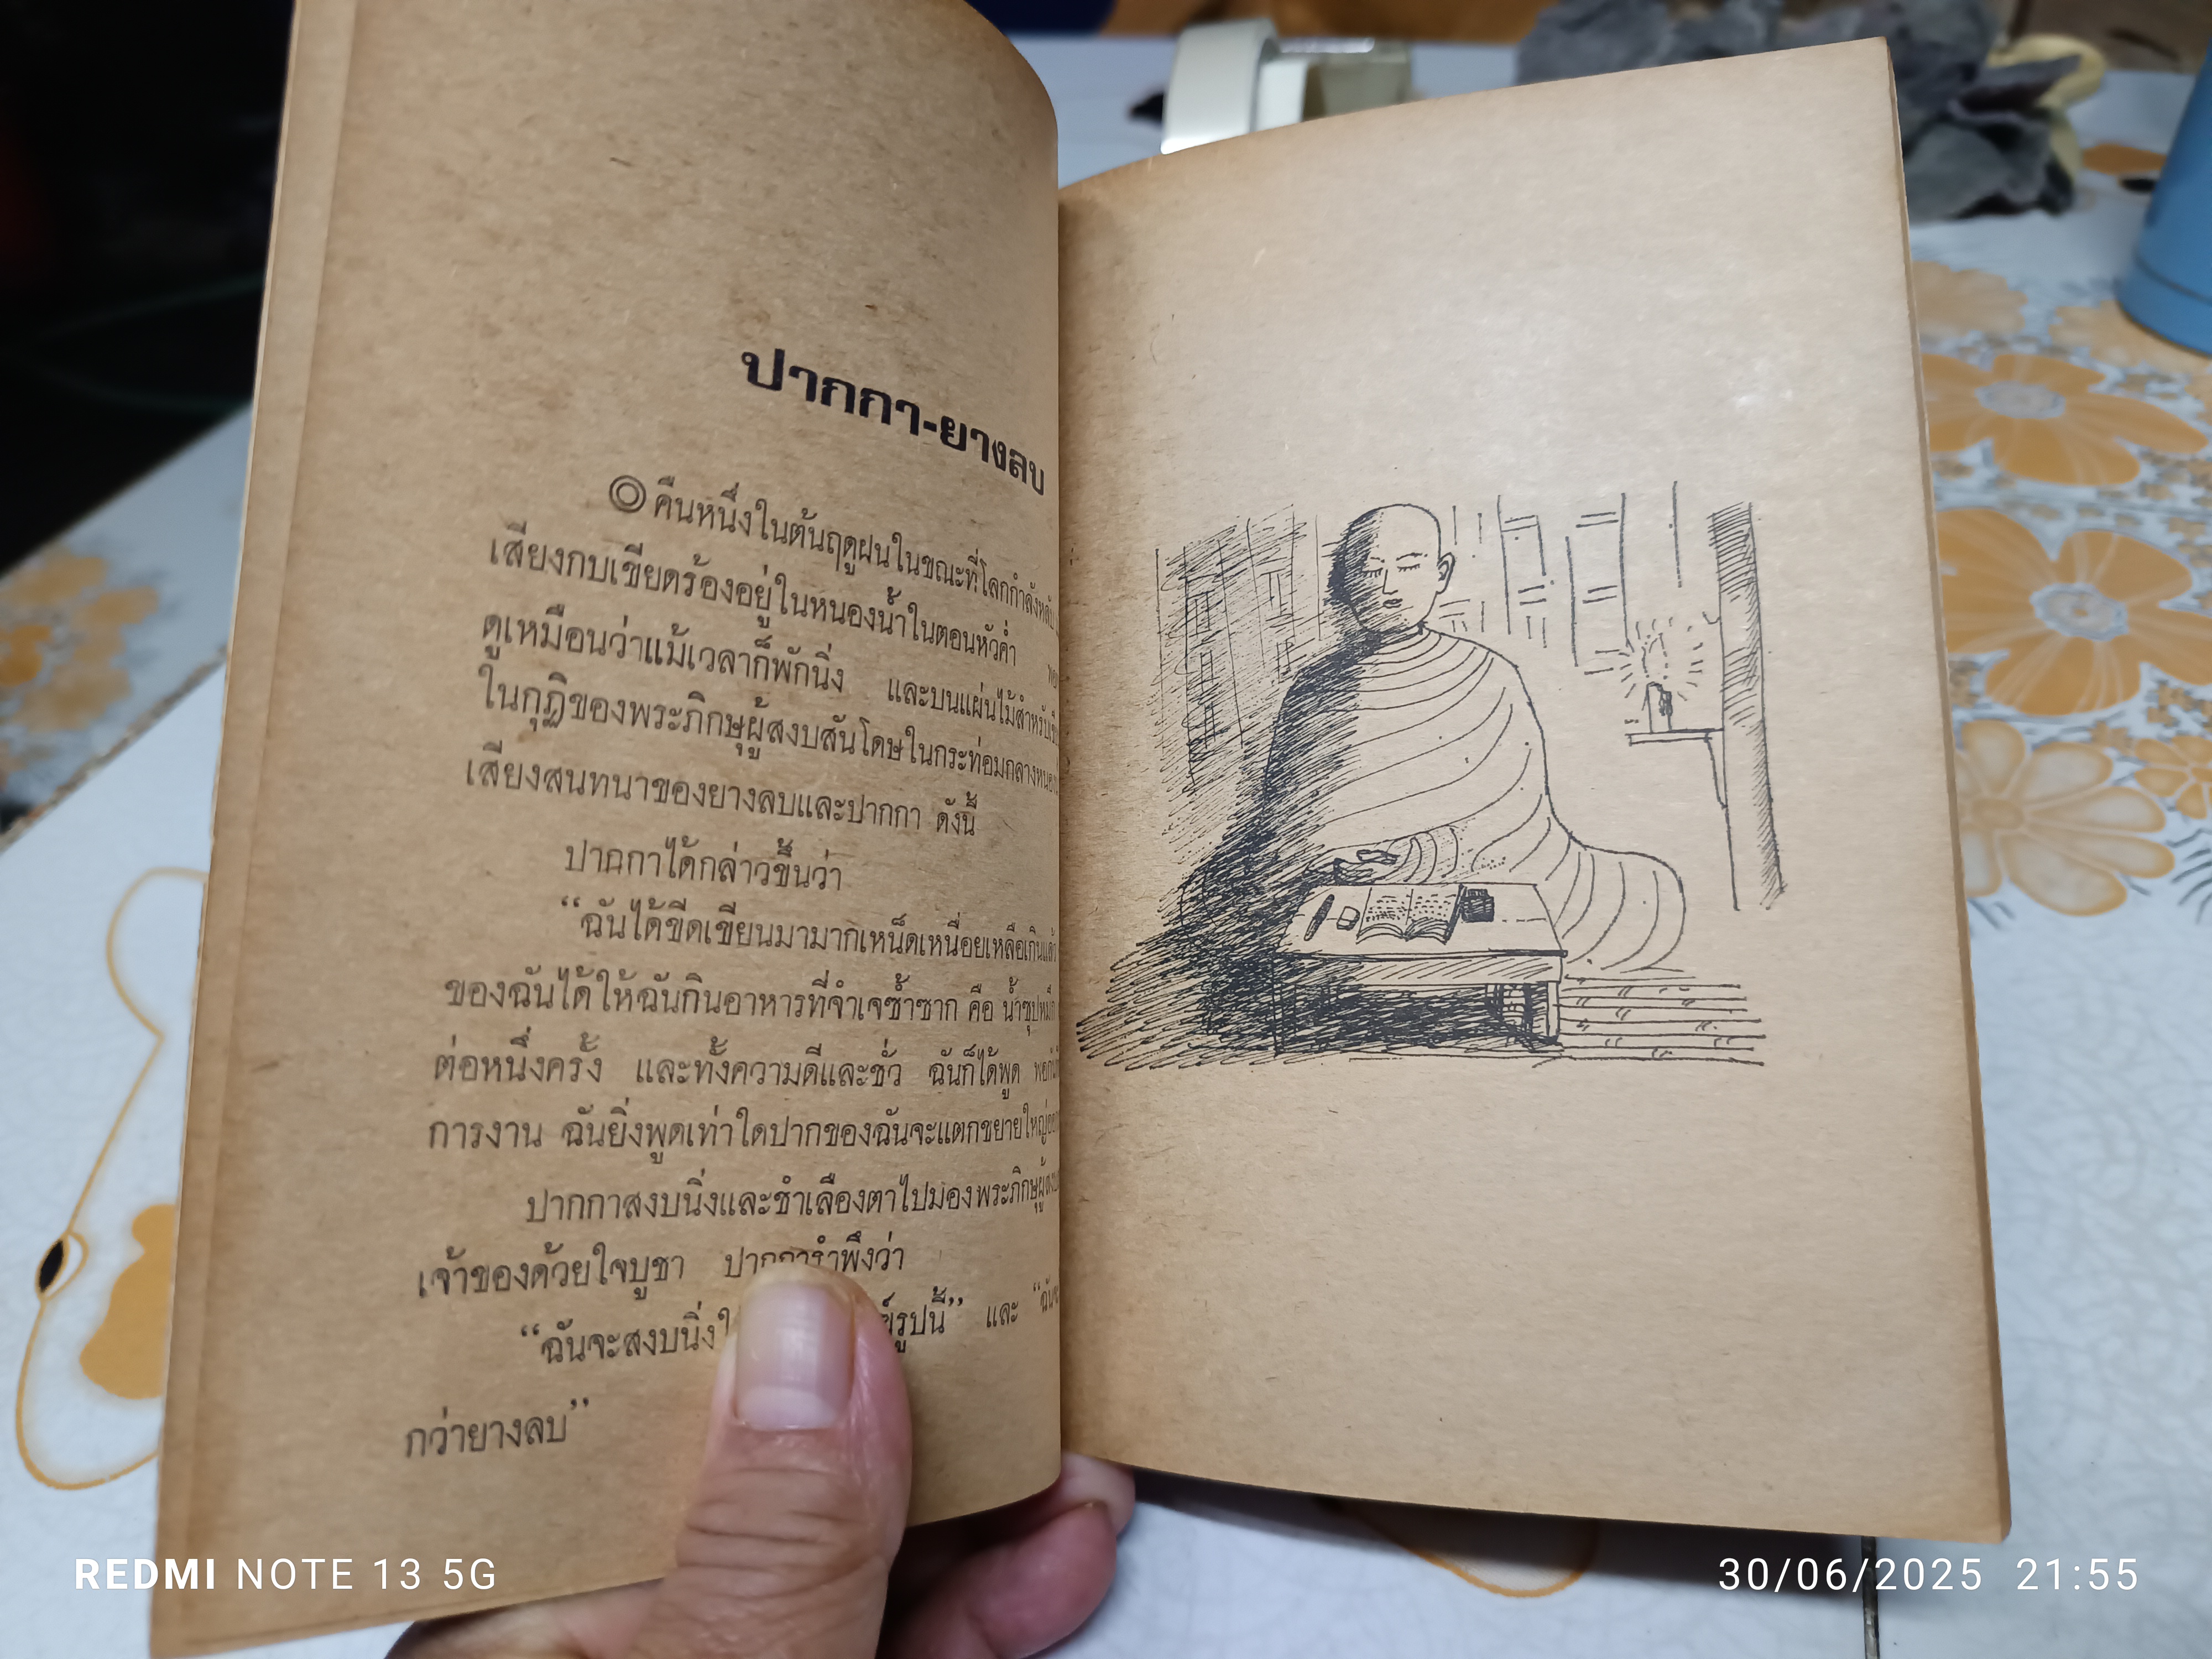 ปากกา-ยางลบ
คืนหนึ่งในต้นฤดูฝนในขณะที่โลกกำลังหลับ
เสียงกบเขียดร้องอยู่ในหนองน้ำในตอนหัวค่ำ
ดูเหมือนว่าแม้เวลาก็พักนิ่ง และบนแผ่นไม้สำหรับเขีย
ในกุฏิของพระภิกษุผู้สงบสันโดษในกระท่อมกลาง
เสียงสนทนาของยางลบและปากกา ดังนี้
ปากกาได้กล่าวขึ้นว่า
“ฉันได้ขีดเขียนมามากเหน็ดเหนื่อยเหลือเกินแล้ว
ของฉันได้ให้ฉันกินอาหารที่จำเจซ้ำซาก คือ น้ำซุปหมึก
ต่อหนึ่งครั้ง และทั้งความดีและชั่ว ฉันก็ได้พูด
การงาน ฉันยิ่งพูดเท่าใดปากของฉันจะแตกขยายใหญ่
ปากกาสงบนิ่งและชำเลืองตาไปมองพระภิกษุผู้
เจ้าของด้วยใจบูชา ปากการำพึงว่า
“ฉันจะสงบนิ่ง รูปนี้” และ
กว่ายางลบ”
REDMI NOTE 13 5G
30/06/2025 21:55